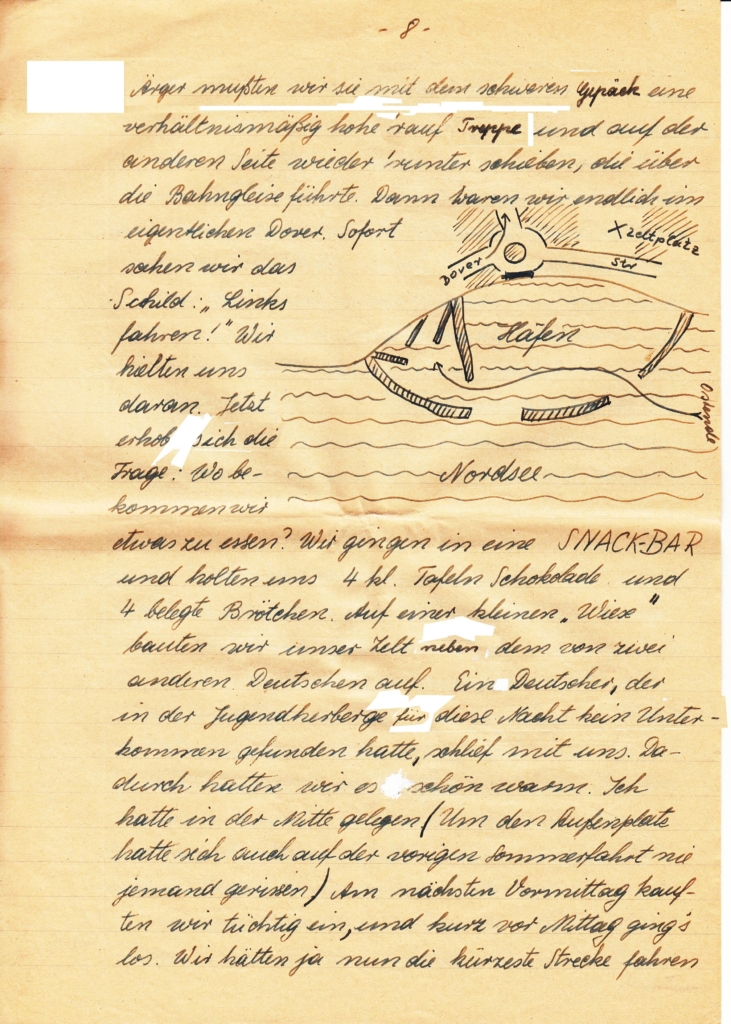 - 8 -
Ärger mußten wir sie mit dem schweren Gepäck eine
verhältnismäßig hohe 'rauf Treppe und auf der
anderen Seite wieder 'runter schieben, die über
die Bahngleise führte. Dann waren wir endlich im
eigentlichen Dover. Sofort
sahen wir das
Schild: „Links
fahren!" Wir
hielten uns
daran. Jetzt
erhob sich die
Frage: Wo be-
kommen wir
X Zeltplatz
Dover Str
Hafen
Ostende
Nordsee
etwas zu essen? Wir gingen in eine SNACK-BAR
und holten uns 4 kl. Tafeln Schokolade und
4 belegte Brötchen. Auf einer kleinen „Wiese"
bauten wir unser Zelt neben dem von zwei
anderen Deutschen auf. Ein Deutscher, der
in der Jugendherberge für diese Nacht kein Unter-
kommen gefunden hatte, schlief mit uns. Da-
durch hatten wir es schön warm. Ich
hatte in der Mitte gelegen (Um den Außenplatz
hatte sich auch auf der vorigen Sommerfahrt nie
jemand gerissen) Am nächsten Vormittag kauf-
ten wir tüchtig ein, und kurz vor Mittag ging's
los. Wir hätten ja nun die kürzeste Strecke fahren